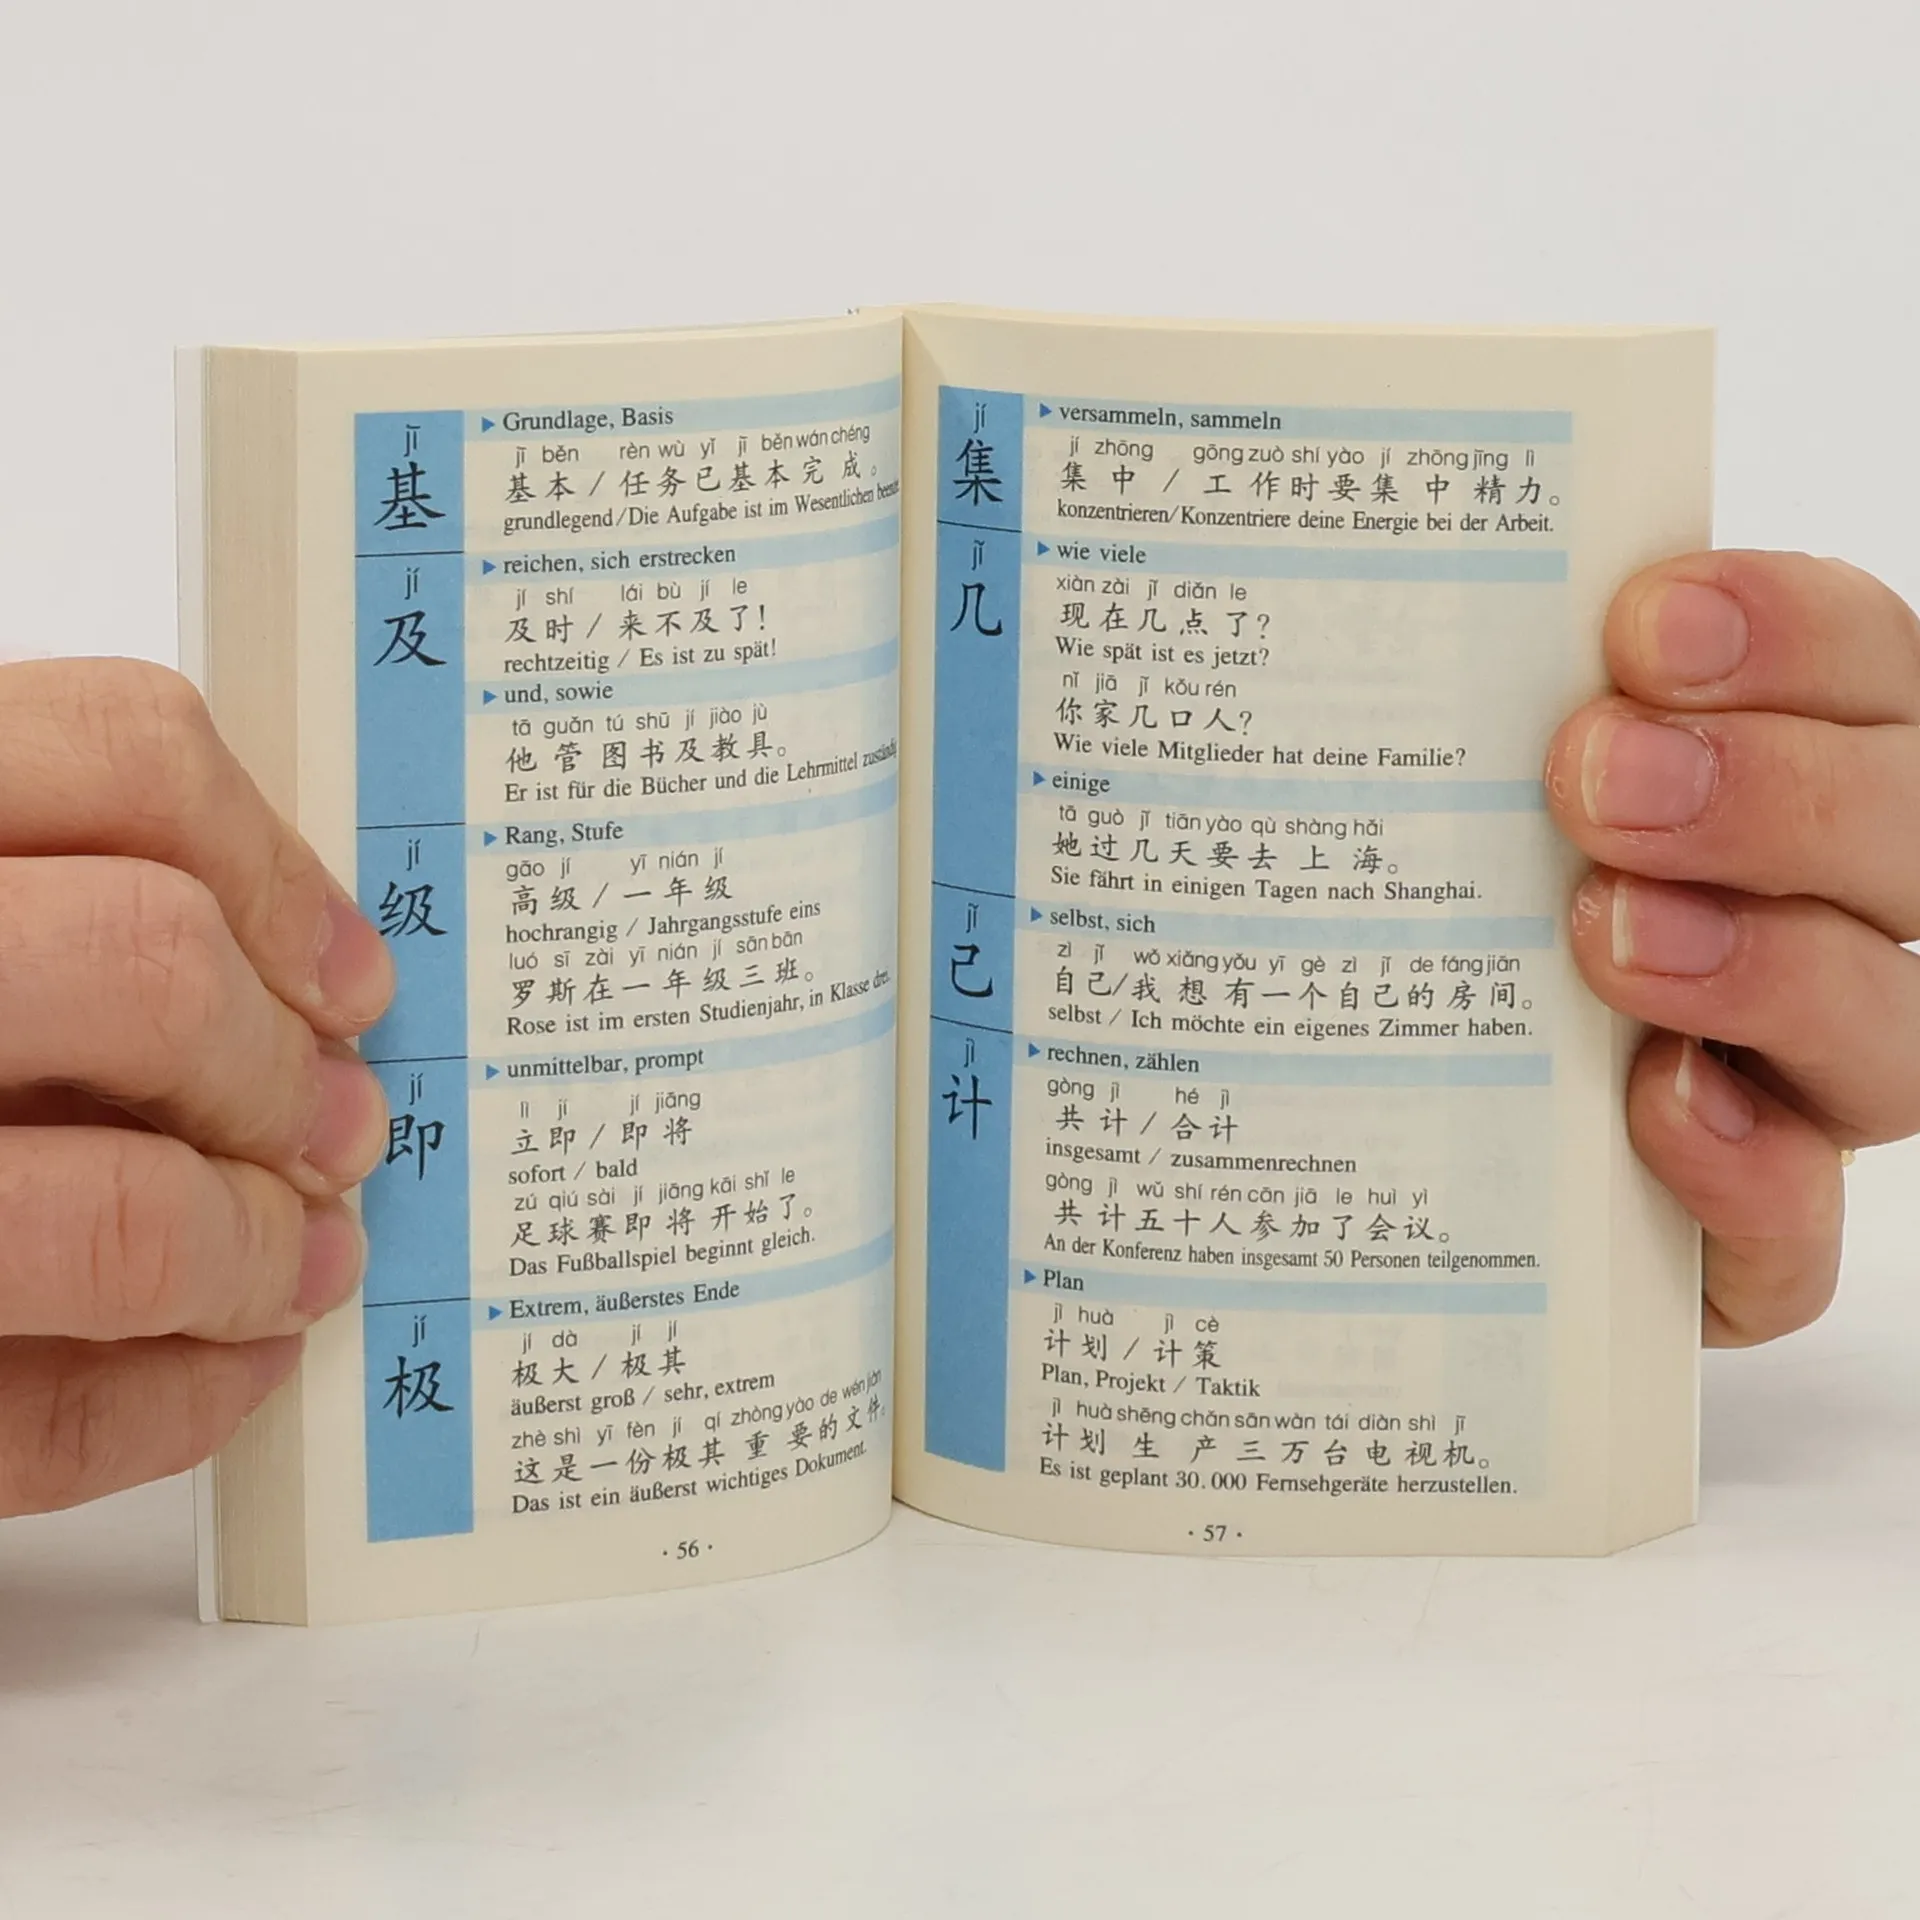 jī
基
▶ Grundlage, Basis
jī běn rèn wù yǐ jī běn wán chéng
基本 / 任务已基本完成。
grundlegend / Die Aufgabe ist im Wesentlichen
jí
及
▶ reichen, sich erstrecken
jí shí lái bù jí le
及时 / 来不及了!
rechtzeitig / Es ist zu spät!
▶ und, sowie
tā guǎn tú shū jí jiào jù
他管图书及教具。
Er ist für die Bücher und die Lehrmittel
jí
级
▶ Rang, Stufe
gāo jí yī nián jí
高级 / 一年级
hochrangig / Jahrgangsstufe eins
luó sī zài yī nián jí sān bān
罗斯在一年级三班。
Rose ist im ersten Studienjahr, in Klasse drei.
jí
即
▶ unmittelbar, prompt
lì jí jí jiāng
立即 / 即将
sofort / bald
zú qiú sài jí jiāng kāi shǐ le
足球赛即将开始了。
Das Fußballspiel beginnt gleich.
jí
极
▶ Extrem, äußerstes Ende
jí dà jí jí
极大 / 极其
äußerst groß / sehr, extrem
zhè shì yī fèn jí qí zhòng yào de wén jiàn
这是一份极其重要的文件。
Das ist ein äußerst wichtiges Dokument.
· 56 ·
jí
集
▶ versammeln, sammeln
jí zhōng gōng zuò shí yào jí zhōng jīng lì
集中 / 工作时要集中精力。
konzentrieren/Konzentriere deine Energie bei der Arbeit.
jǐ
几
▶ wie viele
xiàn zài jǐ diǎn le
现在几点了?
Wie spät ist es jetzt?
nǐ jiā jǐ kǒu rén
你家几口人?
Wie viele Mitglieder hat deine Familie?
▶ einige
tā guò jǐ tiān yào qù shàng hǎi
她过几天要去上海。
Sie fährt in einigen Tagen nach Shanghai.
jǐ
己
▶ selbst, sich
zì jǐ wǒ xiǎng yǒu yī gè zì jǐ de fáng jiān
自己/我想有一个自己的房间。
selbst / Ich möchte ein eigenes Zimmer haben.
jì
计
▶ rechnen, zählen
gòng jì hé jì
共计 / 合计
insgesamt / zusammenrechnen
gòng jì wǔ shí rén cān jiā le huì yì
共计五十人参加了会议。
An der Konferenz haben insgesamt 50 Personen teilgenommen.
▶ Plan
jì huà jì cè
计划 / 计策
Plan, Projekt / Taktik
jì huà shēng chǎn sān wàn tái diàn shì jī
计划生产三万台电视机。
Es ist geplant 30.000 Fernsehgeräte herzustellen.
· 57 ·